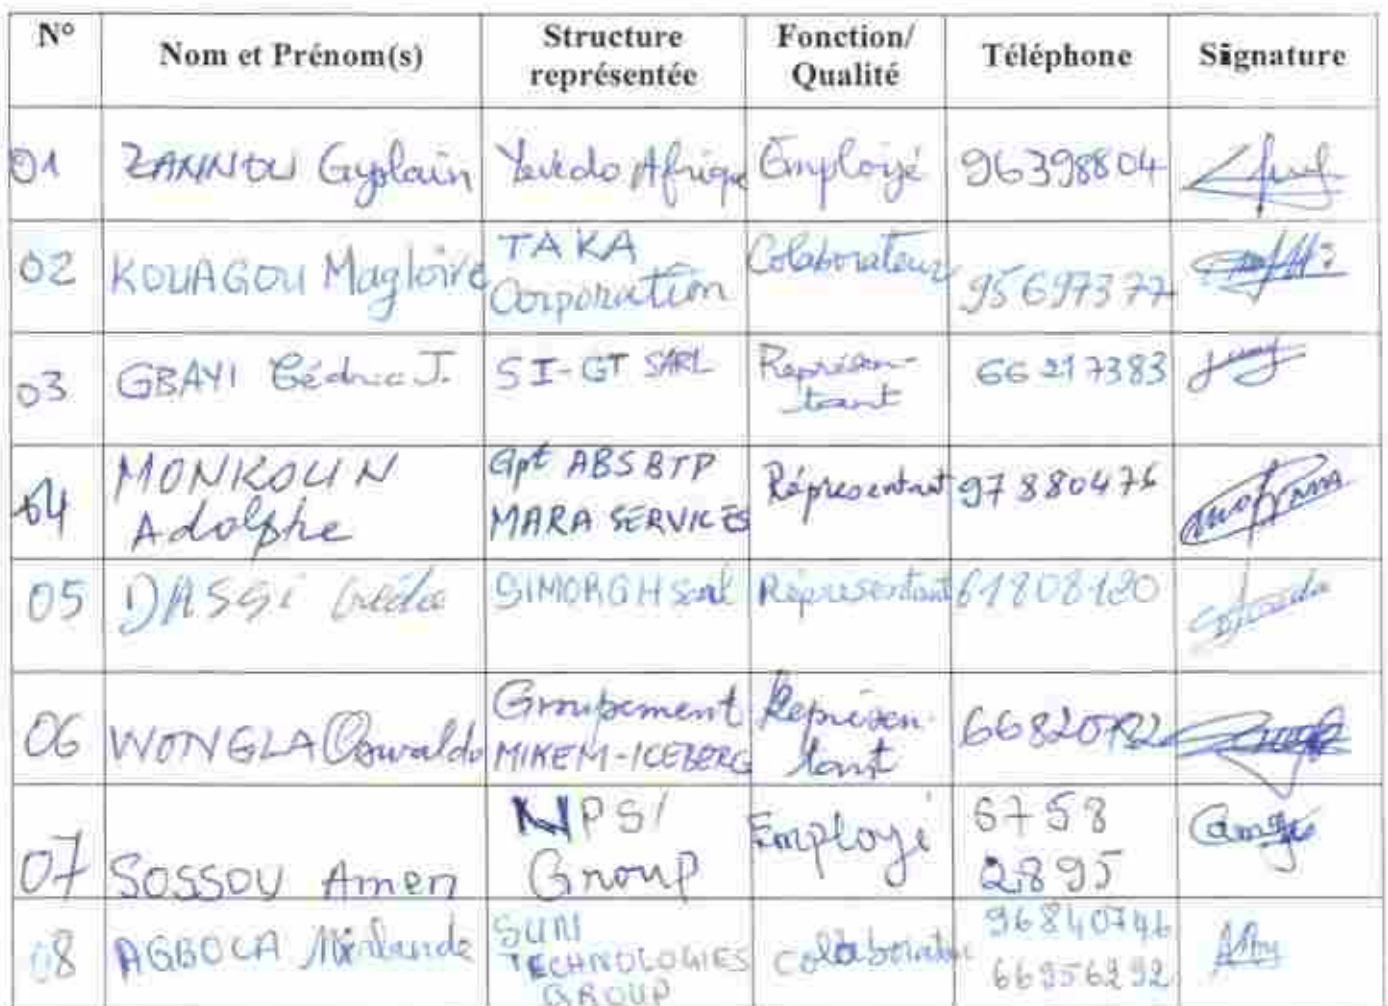 N° Nom et Prénom(s) Structure représentée Fonction/ Qualité Téléphone Signature
01 ZANNOU Gyslain Yevedo Afrique Employé 96398804
02 KOUAGOU Magloire TAKA Corporation Colaborateur 95697377
03 GBAYI Cédric J. SI-GT SARL Représen-tant 66217383
04 MONKOUN Adolphe Gpt ABS BTP MARA SERVICES Réprésentant 97880476
05 DASSI SIMORGH Sarl Représentant 61808180
06 WONGLA Oswaldo Groupement MIKEM-ICEBERG Représen-tant
07 SOSSOU Amen NPS/ Group Employé 6758 2895
08 AGBOCA SUNI TECHNOLOGIES GROUP Colaborateur 96840746 66956292